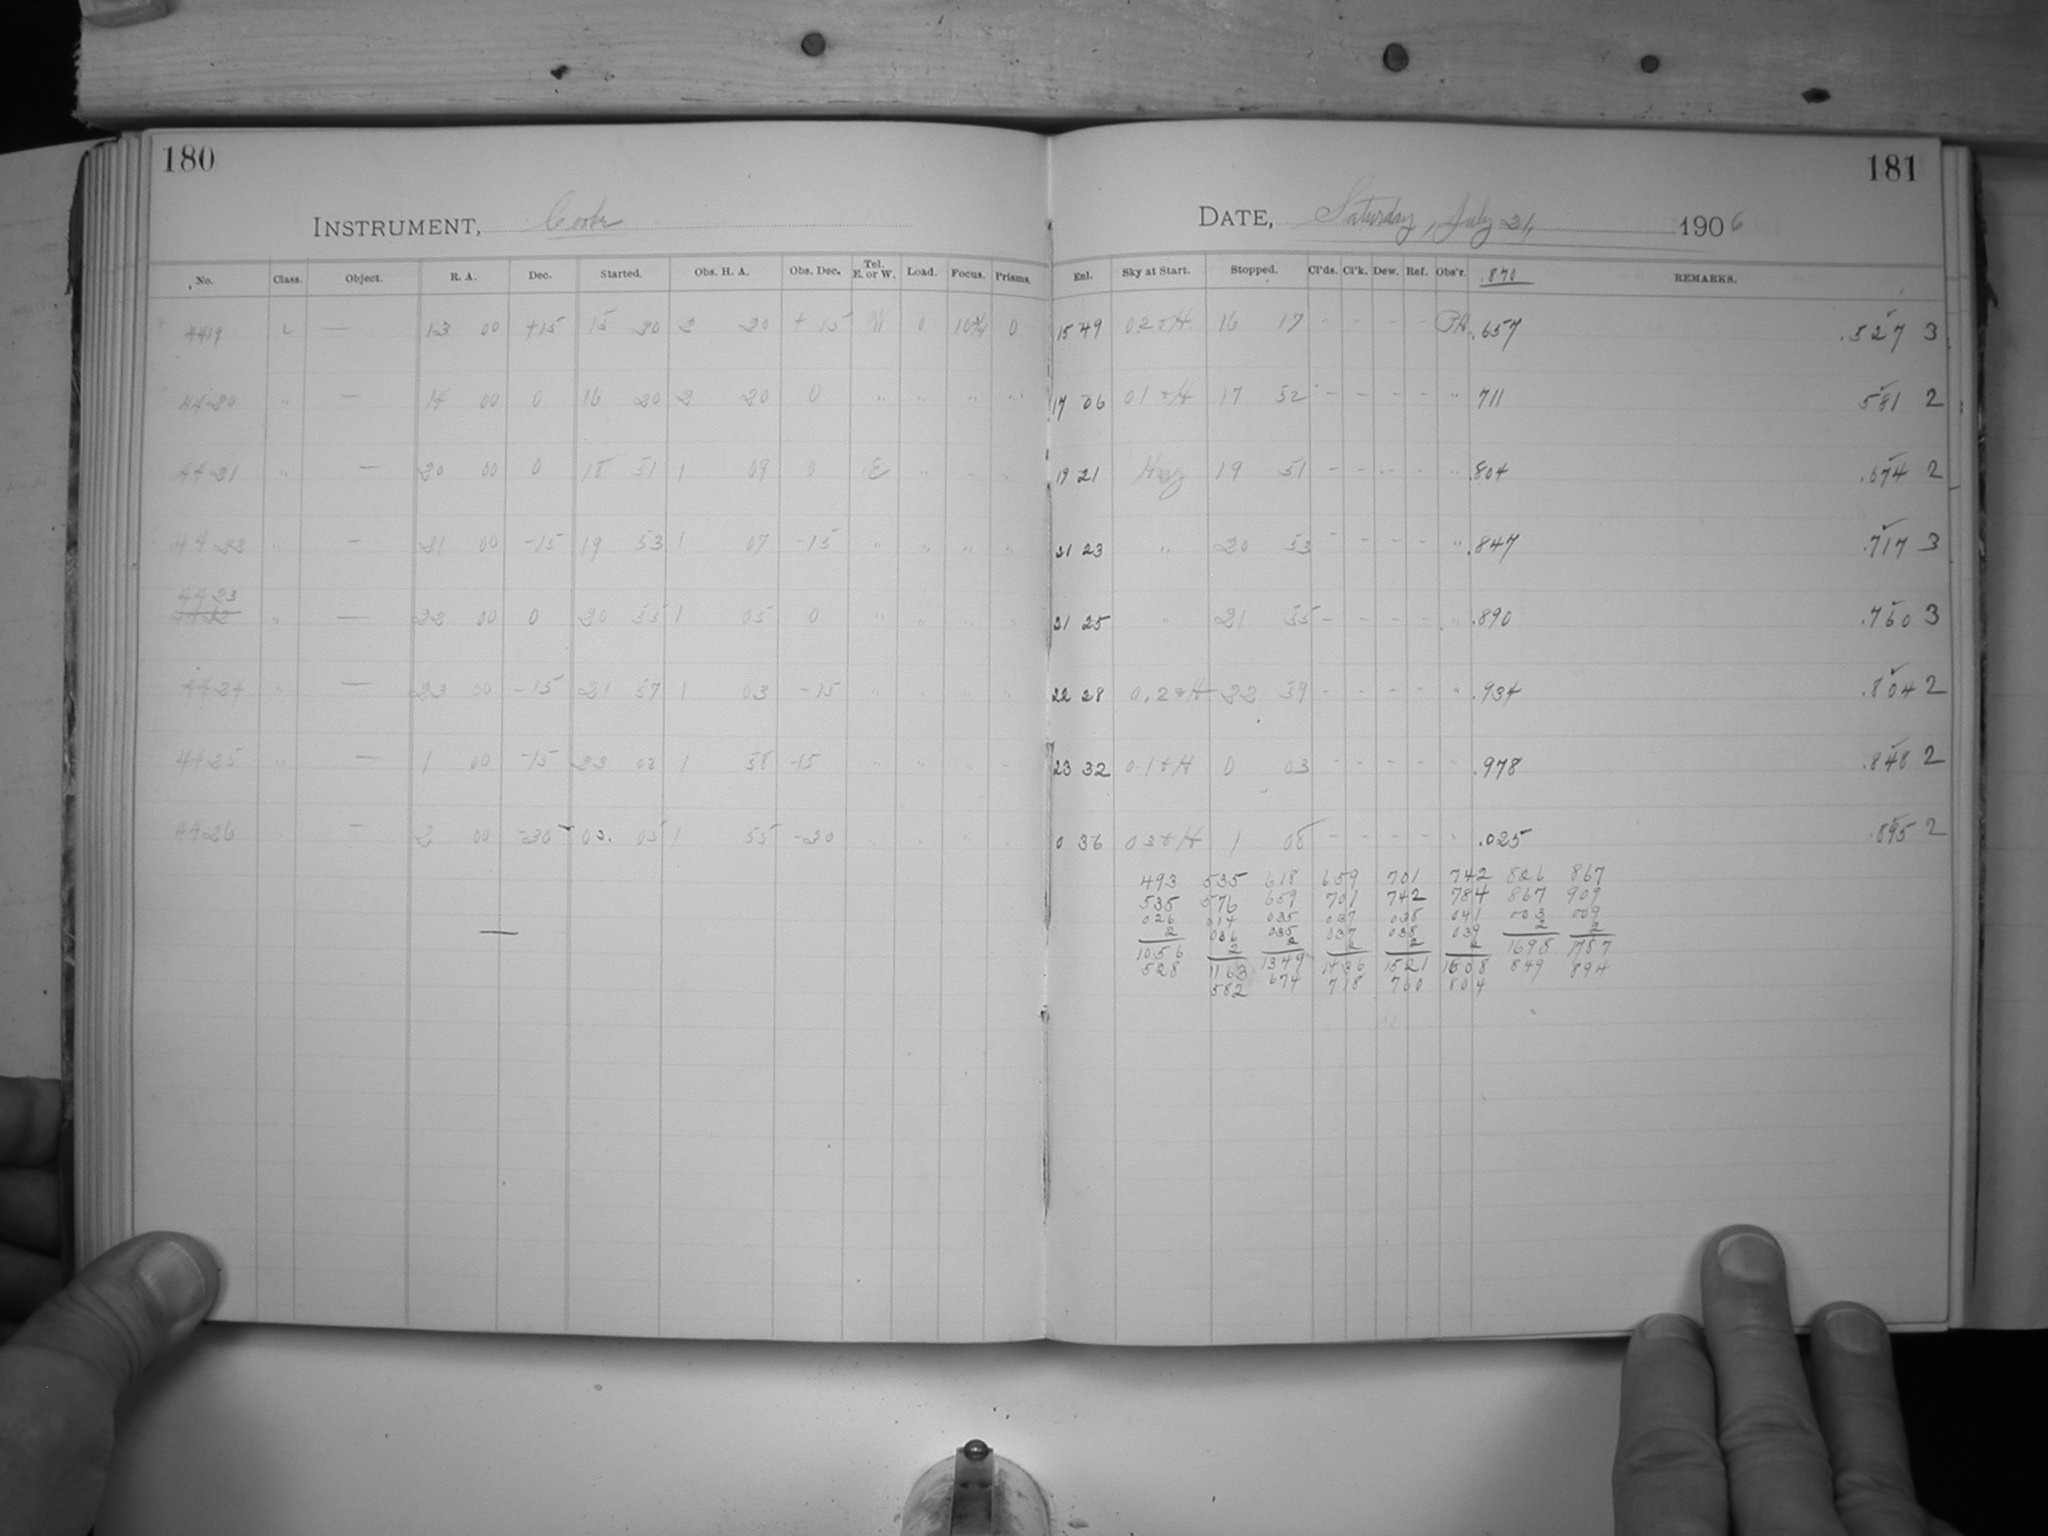 180
INSTRUMENT, Cooke
No. Class. Object. R. A. Dec. Started. Obs. H. A. Obs. Dec. Tel. E. or W. Load. Focus. Prisms.
4419 L — 13 00 +15 15 20 2 20 +15 W 0 10¾ 0
4420 " — 14 00 0 16 20 2 20 0 " " " "
4421 " — 20 00 0 18 51 1 09 0 E " " "
4422 " — 21 00 -15 19 53 1 07 -15 " " " "
4423
" — 22 00 0 20 55 1 05 0 " " " "
4424 " — 23 00 -15 21 57 1 03 -15 " " " "
4425 " — 1 00 -15 23 02 1 58 -15 " " " "
4426 " — 2 00 -30 0 05 1 55 -30
—
181
DATE, Saturday, July 21, 1906
Enl. Sky at Start. Stopped. Cl'ds. Cl'k. Dew. Ref. Obs'r. .870 REMARKS.
15 49 0.2+H 16 17 - - - - .657 .527 3
17 06 01+H 17 52 - - - - " 711 581 2
19 21 Hazy 19 51 - - - - " .804 .674 2
21 23 " 20 53 - - - - " .847 .717 3
21 25 " 21 55 - - - - " .890 .760 3
22 28 0.2+H 22 59 - - - - " .934 .804 2
23 32 0.1+H 0 03 - - - - " .978 .848 2
0 36 03+H 1 08 - - - - " .025 .895 2
493 535 618 659 701 742 826 867
535 576 659 701 742 784 867 909
026 014 035 037 038 041 003 009
2 036 035 037 038 039 2 2
1056 2 2 2 2 2 1698 1787
528 1163 1349 1436 1521 1608 849 894
582 674 718 760 804